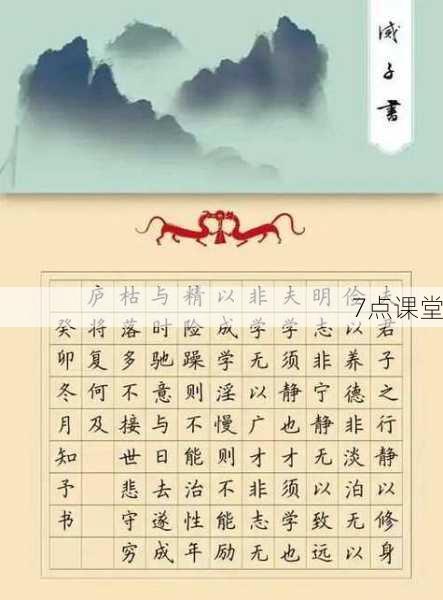 诫子書
7点课堂
夫君子之行静以修身
俭以养德非淡泊无以
明志非宁静无以致远
夫学须静也才须学也
非学无以广才非志无
以成学淫慢则不能励
精险躁则不能治性年
与时驰意与日去遂成
枯落多不接世悲守穷
庐将复何及
癸卯冬月知予书